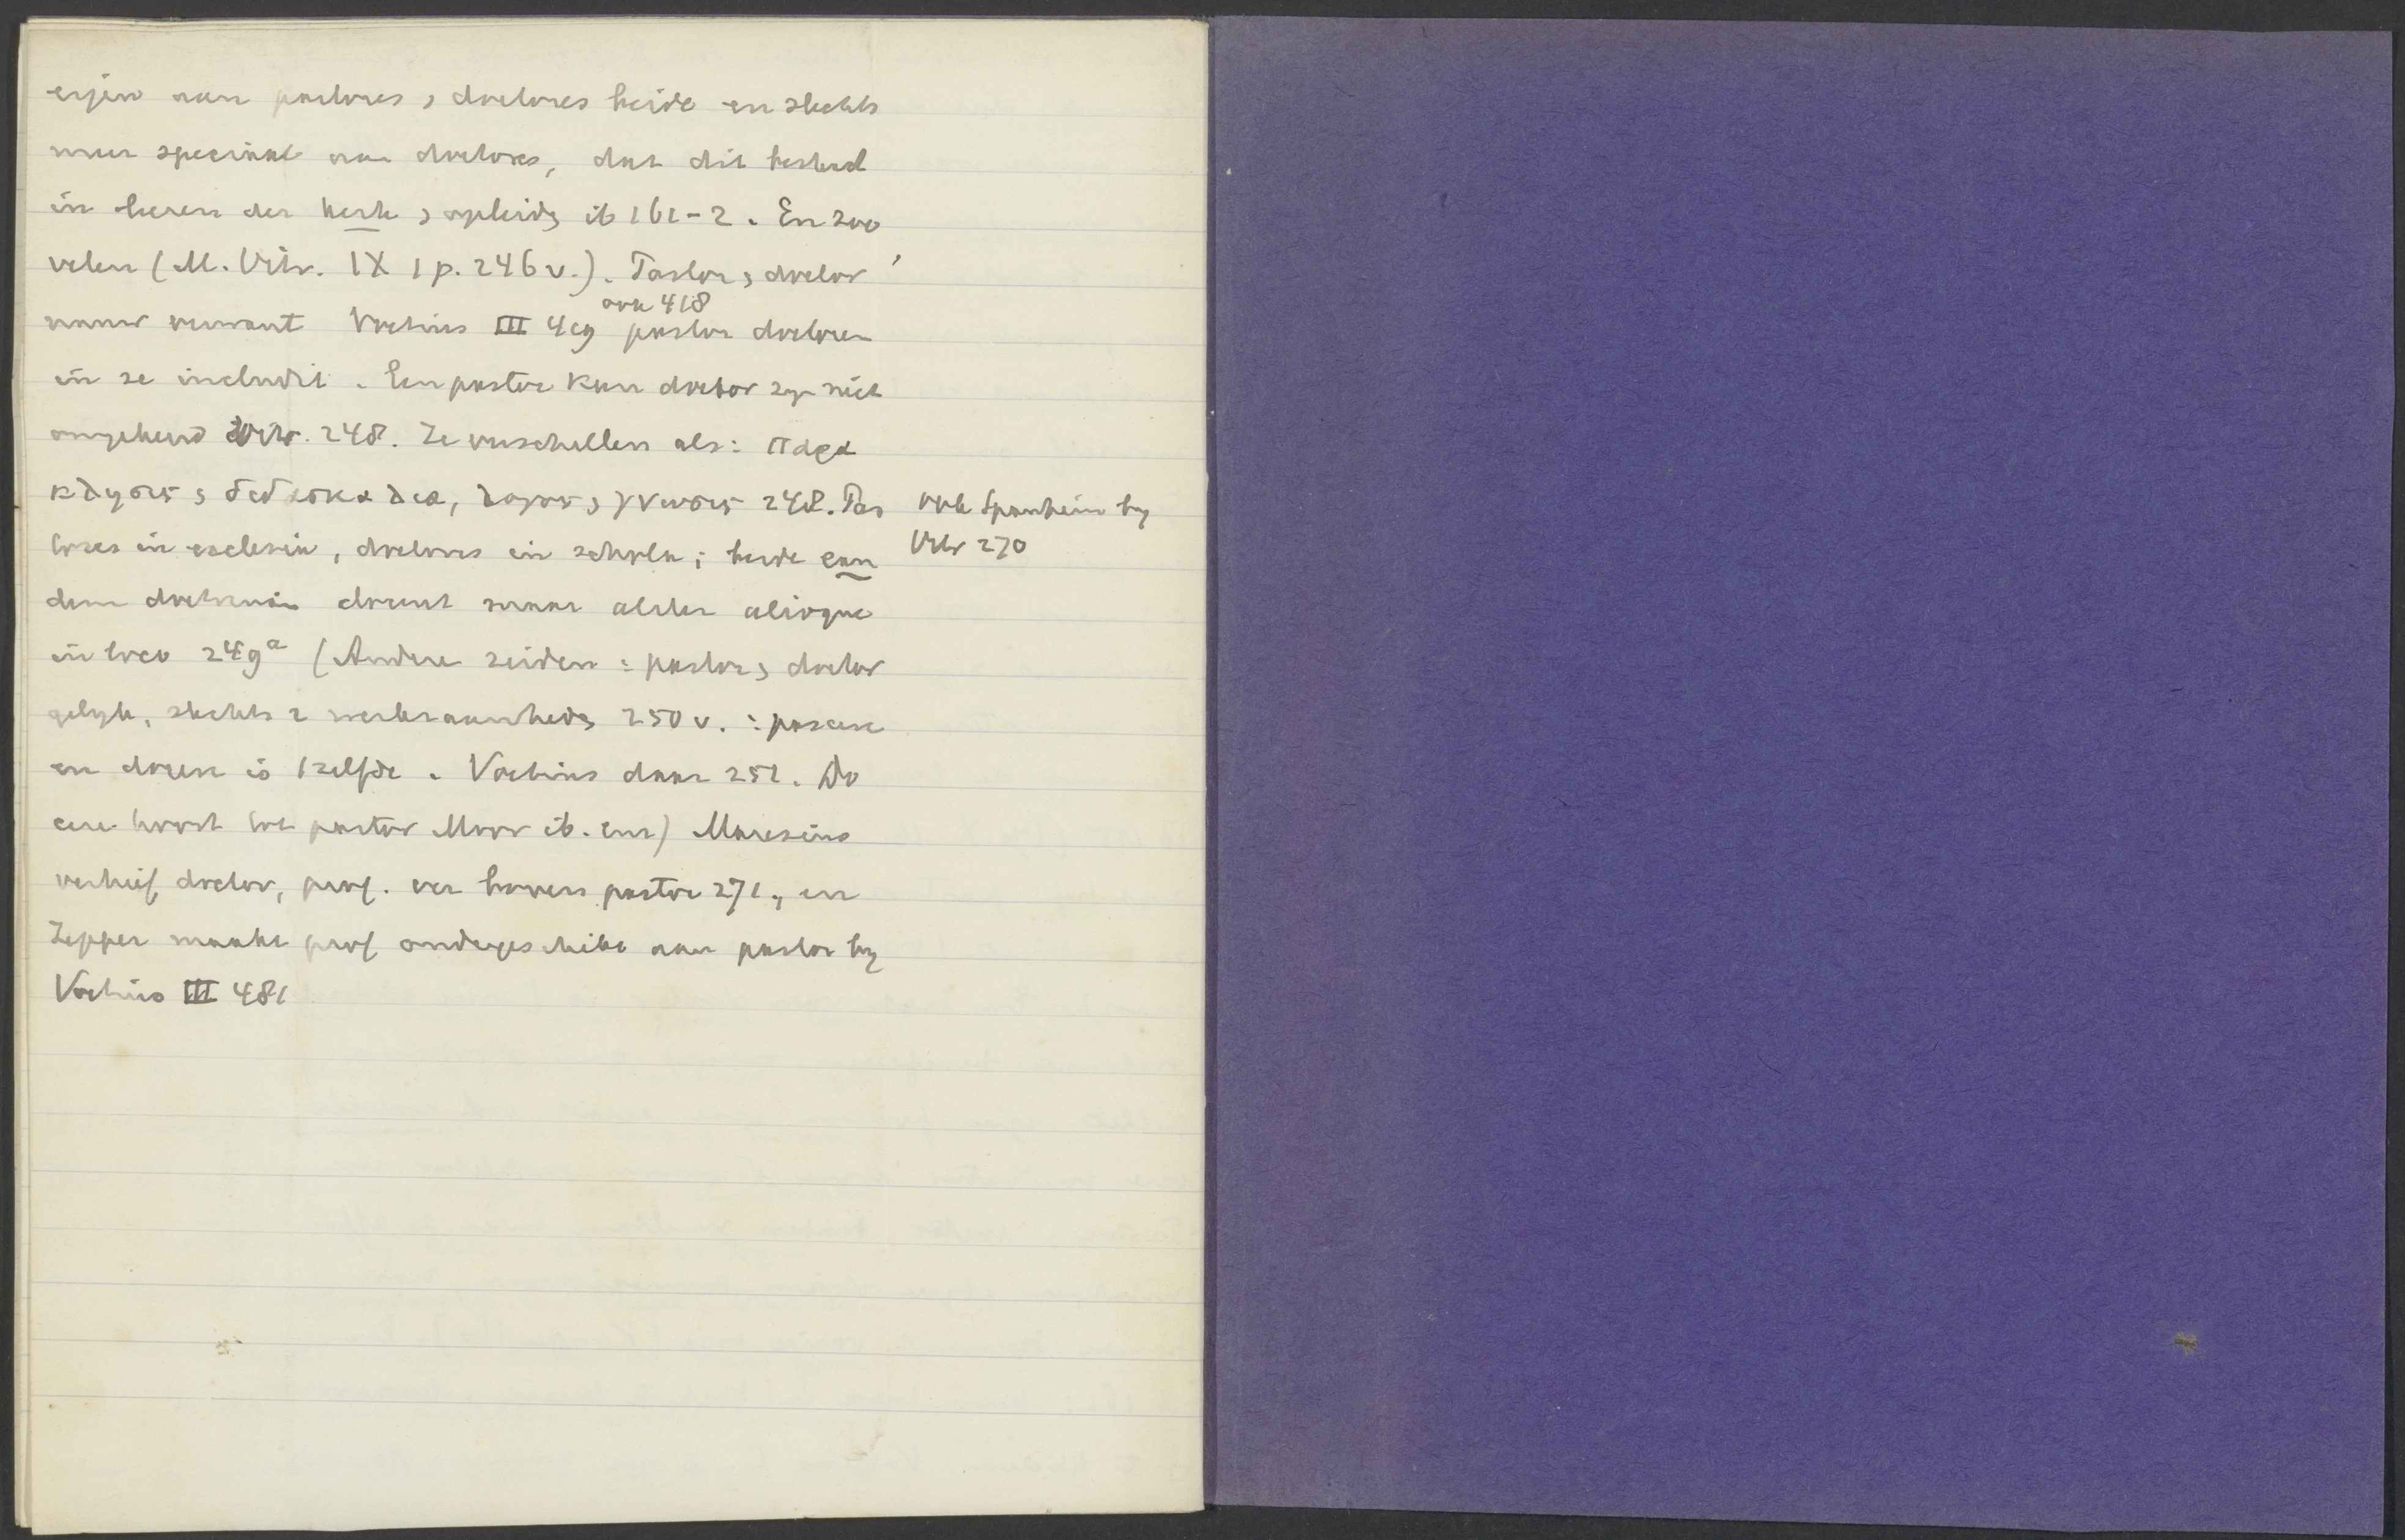 eigen aan pastores & doctores beide en slechts
meer speciaal aan doctores, dat dit bestond
in leeren der kerk & opleidg ib 161-2. En zoo
velen (M. Vitr. IX 1 p. 246 v.). Pastor & doctor
nauw verwant Voetius III 469 pastor doctorem
ook 418
in se includit. Een pastor kan doctor zyn niet
omgekeerd Vitr. 248. Ze verschillen als: παρα
κλησις & διδασκαλια, λογος & γνωσις 248. Pas
tores in ecclesia, doctores in schola; beide ean
dem doctrinam docent maar aliter alioque
in loco 249a (Andere zeiden: pastor & doctor
gelyk, slechts 2 werkzaamhedn 250 v.: pascere
en docere is 1 zelfde. Voetius daar 251. Do
cere hoort tot pastor Moor ib. enz) Maresius
verhief doctor, prof. ver boven pastor 271, en
Zepper maakt prof ondergeschikt aan pastor by
Voetius III 481
ook Spanheim by
Vitr 270